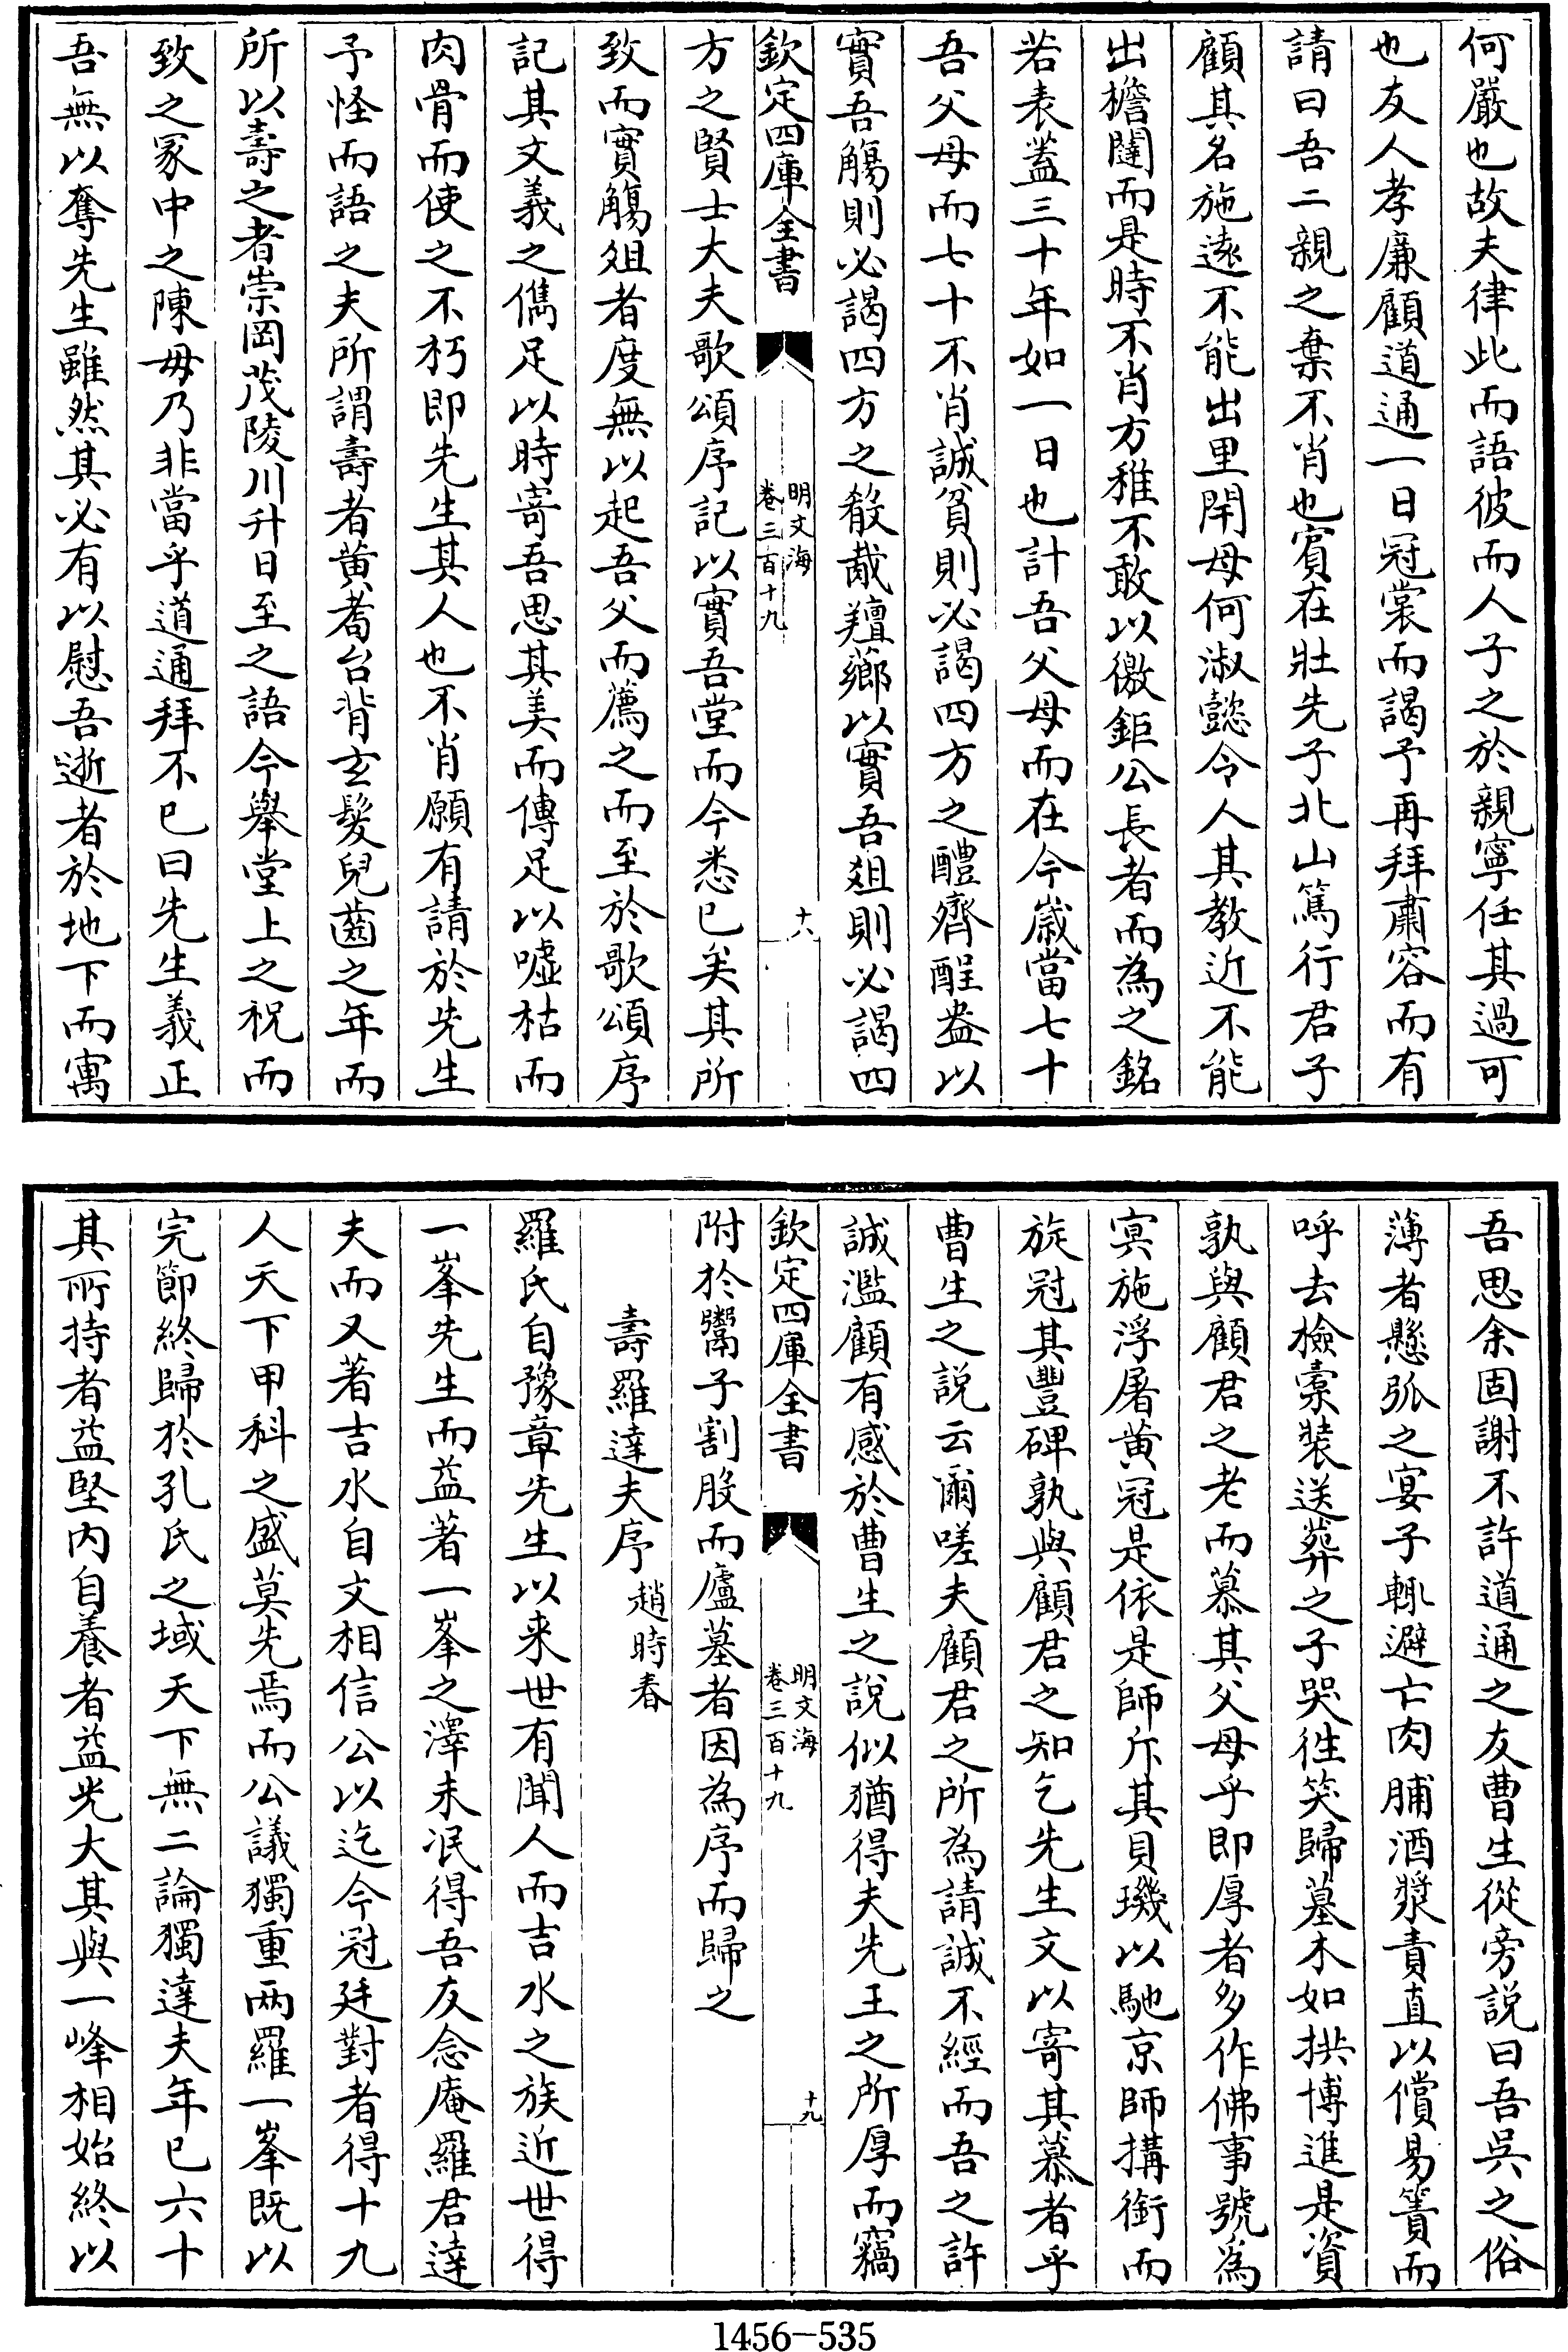 何嚴也故夫律此而語彼而人子之於親寧任其過可
也友人孝廉顧道通一日冠裳而謁予再拜肅容而有
請曰吾二親之棄不肖也賓在壯先子北山篤行君子
顧其名施遠不能出里閈母何淑懿令人其教近不能
出櫩闥而是時不肖方稚不敢以徼鉅公長者而為之銘
若表蓋三十年如一日也計吾父母而在今嵗當七十
吾父母而七十不肖誠貧則必謁四方之醴齊酲盎以
實吾觴則必謁四方之殽胾羶薌以實吾俎則必謁四
欽定四庫全書
明文海
卷三百十九
十八
方之賢士大夫歌頌序記以實吾堂而今悉已矣其所
致而實觴俎者度無以起吾父而薦之而至於歌頌序
記其文義之儁足以時寄吾思其美而傳足以噓枯而
肉骨而使之不朽即先生其人也不肖願有請於先生
予怪而語之夫所謂壽者黄耈台背玄髮兒齒之年而
所以壽之者崇岡茂陵川升日至之語今舉堂上之祝而
致之冢中之陳毋乃非當乎道通拜不已曰先生義正
吾無以奪先生雖然其必有以慰吾逝者於地下而寓
吾思余固謝不許道通之友曹生從旁説曰吾吳之俗
薄者懸弧之宴子輒避亡肉脯酒漿責直以償易簀而
呼去檢橐裝送葬之子哭徃笑歸墓木如拱博進是資
孰與顧君之老而慕其父母乎即厚者多作佛事號為
冥施浮屠黄冠是依是師斥其貝璣以馳京師搆銜而
旋冠其豐碑孰與顧君之知乞先生文以寄其慕者乎
曹生之説云爾嗟夫顧君之所為請誠不經而吾之許
誠濫顧有感於曹生之說似猶得夫先王之所厚而竊
欽定四庫全書
明文海
卷三百十九
十九
附於鬻子割股而廬墓者因為序而歸之
壽羅達夫序 趙時春
羅氏自豫章先生以来世有聞人而吉水之族近世得
一峯先生而益著一峯之澤未泯得吾友念庵羅君達
夫而又著吉水自文相信公以迄今冠廷對者得十九
人天下甲科之盛莫先焉而公議獨重两羅一峯既以
完節終歸於孔氏之域天下無二論獨達夫年已六十
其所持者益堅内自養者益光大其與一峰相始終以
1456-535